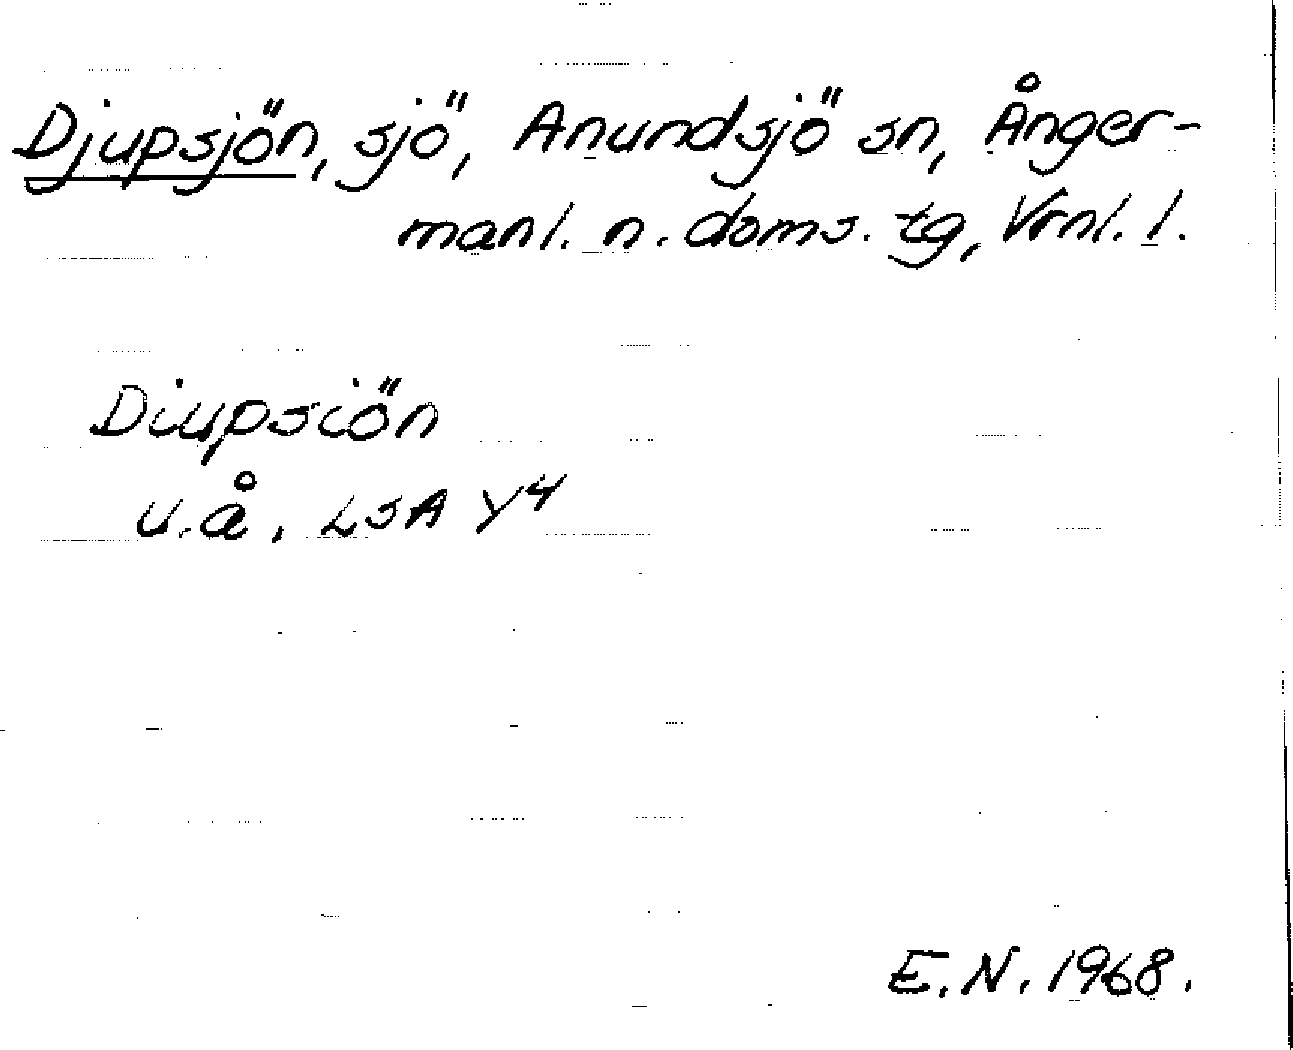 Djupsjön, sjö, Anundsjö sn, Ånger-
manl. n. doms. tg, Vrnl. l.
Diupsiön
u.å, LSA Y4
E.N. 1968.